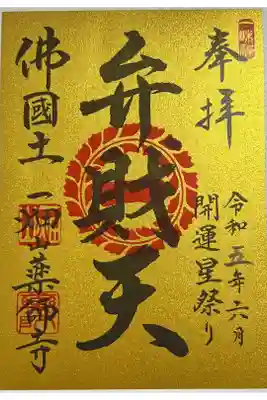 奉拝
令和五年六月
開運星祭り
弁財天
佛國土一畑山薬師寺